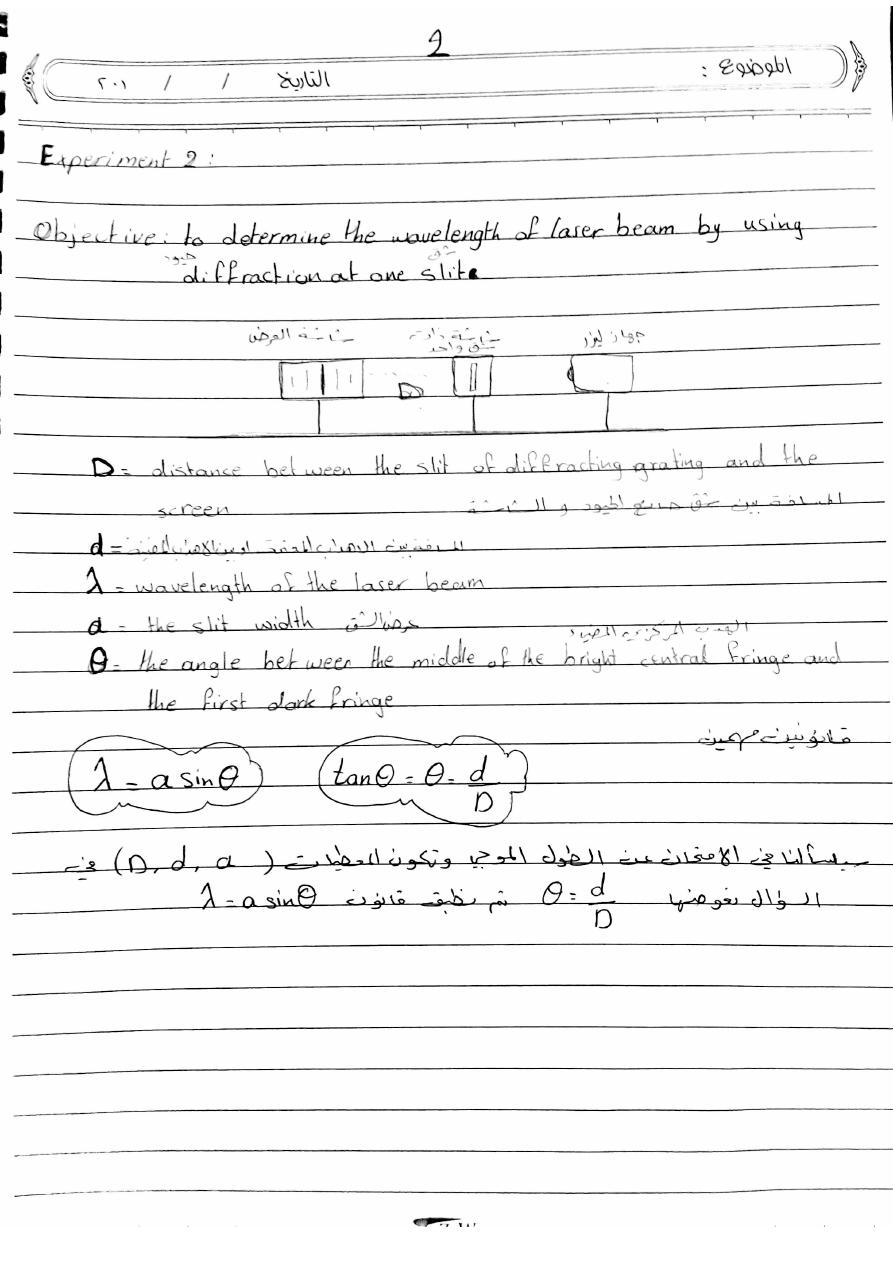 2
الموضوع :
التاريخ / / ٢٠١
Experiment 2 :
Objective: to determine the wavelength of laser beam by using
حيود شق
diffraction at one slit
جهاز ليزر
شاشة ذات
شق واحد
شاشة العرض
D
D = distance between the slit of diffracting grating and the
screen المسافة بين شق حاجز الحيود و الشاشة
d = المسافة بين الاهداب المعتمة او بين الاهداب المضيئة
λ = wavelength of the laser beam
a = the slit width عرض الشق
الهدب المركزي المضيء
θ = the angle between the middle of the bright central fringe and
the first dark fringe
قانونين مهمين
λ = a sinθ tanθ = θ = d/D
سيسألنا في الامتحان عن الطول الموجي وتكون المعطيات (D, d, a) في
السؤال نعوضها θ = d/D ثم نطبق قانون λ = a sinθ